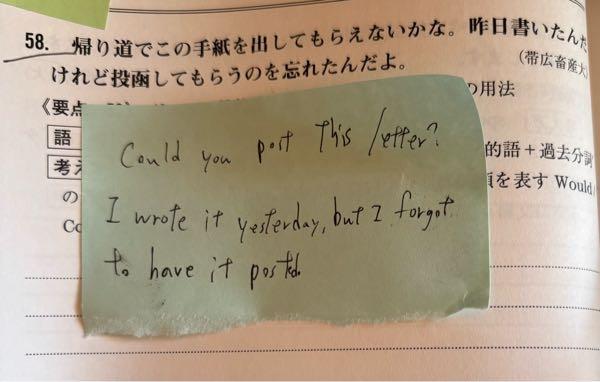 58. 帰り道でこの手紙を出してもらえないかな。昨日書いたんだ
けれど投函してもらうのを忘れたんだよ。
(帯広畜産大
《要点
の用法
語
Could you post this letter?
的語+過去分詞
考え
を表す Would
の
I wrote it yesterday, but I forgot
Co
to have it posted.